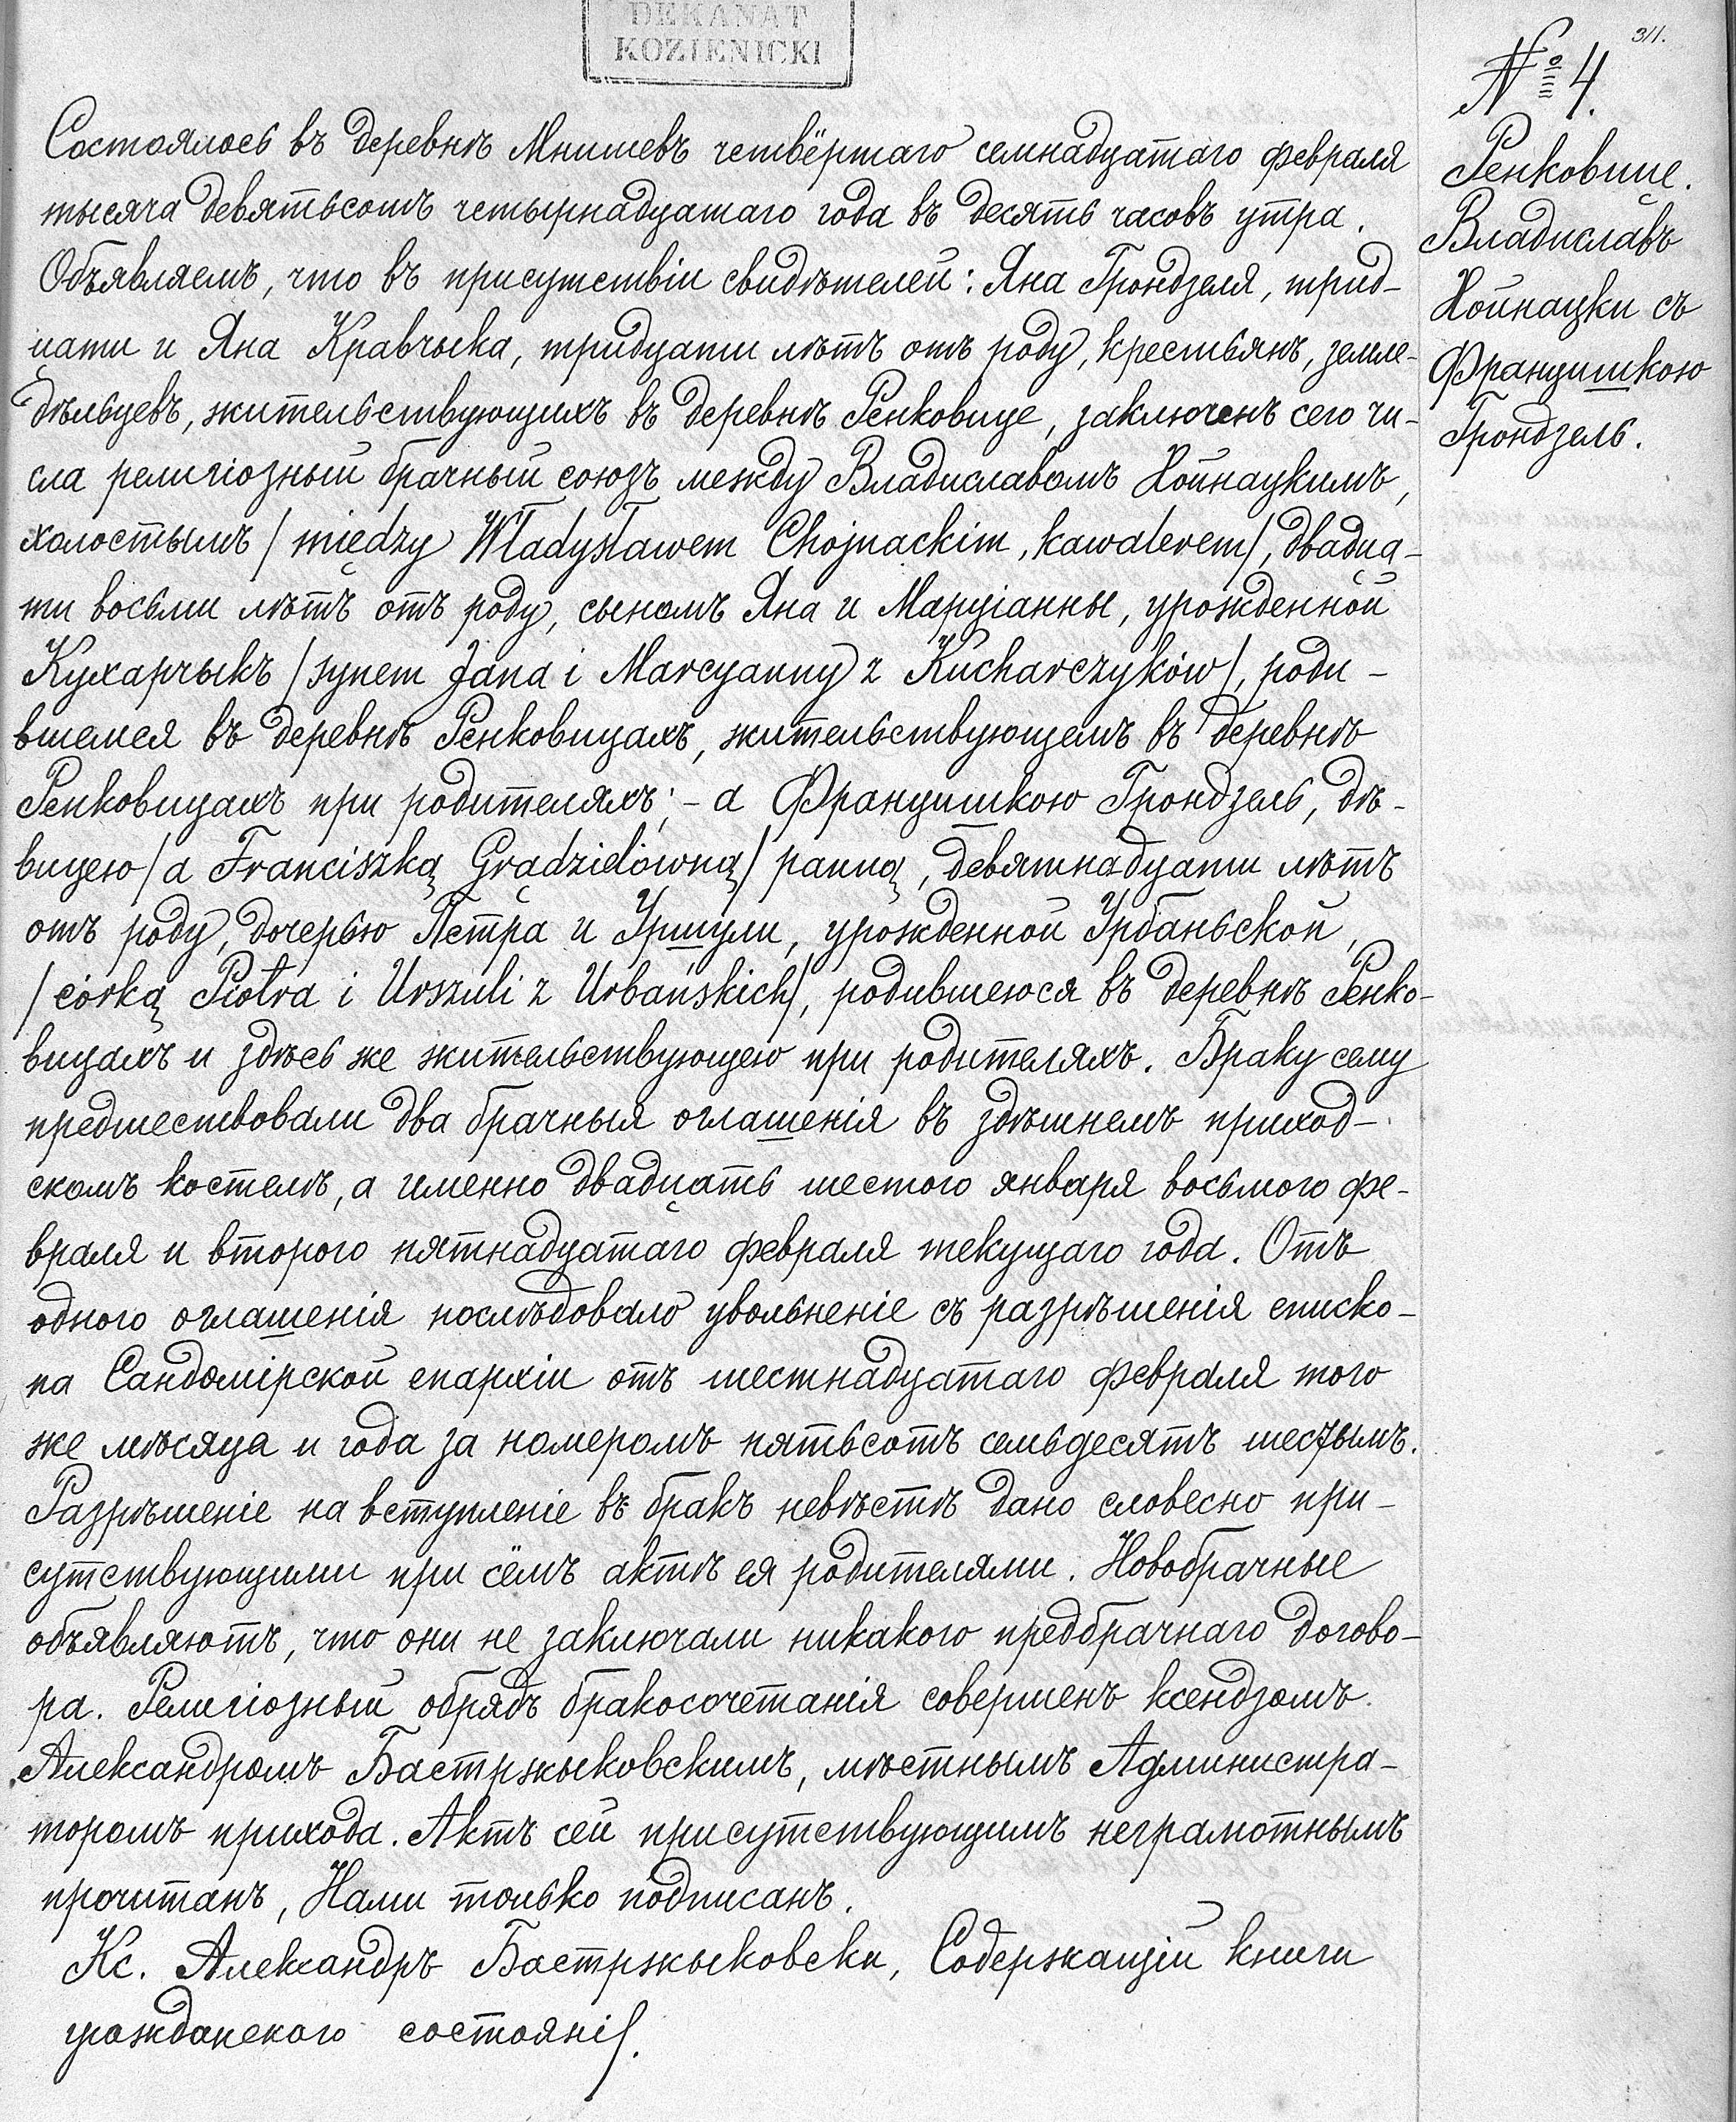 DEKANAT
KOZIENICKI
311.
№ 4.
Ренковице.
Владиславъ
Хойнацки съ
Францишкою
Грондзель.
Состоялось въ деревнѣ Мнишевъ четвёртаго семнадцатаго февраля
тысяча девятьсотъ четырнадцатаго года въ десять часовъ утра.
Объявляемъ, что въ присутствіи свидѣтелей: Яна Грондзеля, трид-
цати и Яна Кравчыка, тридцати лѣтъ отъ роду, крестьянъ, земле-
дѣльцевъ, жительствующихъ въ деревнѣ Ренковице, заключенъ сего чи-
сла религіозный брачный союзъ между Владиславомъ Хойнацкимъ,
холостымъ / między Władysławem Chojnackim, kawalerem/, двадца-
ти восьми лѣтъ отъ роду, сыномъ Яна и Марціанны, урожденной
Кухарчыкъ / synem Jana i Marcyanny z Kucharczyków/, роди-
вшемся въ деревнѣ Ренковицахъ, жительствующемъ въ деревнѣ
Ренковицахъ при родителяхъ; - а Францишкою Грондзель, дѣ-
вицею / a Franciszką Grądzielówną/ panną, девятнадцати лѣтъ
отъ роду, дочерью Петра и Уршули, урожденной Урбаньской,
/ córką Piotra i Urszuli z Urbańskich/, родившеюся въ деревнѣ Ренко-
вицахъ и здѣсь же жительствующею при родителяхъ. Браку сему
предшествовали два брачныя оглашенія въ здѣшнемъ приход-
скомъ костелѣ, а именно двадцать шестого января восьмого фе-
враля и второго пятнадцатаго февраля текущаго года. Отъ
одного оглашенія послѣдовало увольненіе съ разрѣшенія еписко-
па Сандомірской епархіи отъ шестнадцатаго февраля того
же мѣсяца и года за номеромъ пятьсотъ семьдесятъ шестымъ.
Разрѣшеніе на вступленіе въ бракъ невѣстѣ дано словесно при-
сутствующими при сёмъ актѣ ея родителями. Новобрачные
объявляютъ, что они не заключали никакого предбрачнаго догово-
ра. Религіозный обрядъ бракосочетанія совершенъ ксендзомъ
Александромъ Бастржыковскимъ, мѣстнымъ Администра-
торомъ прихода. Актъ сей присутствующимъ неграмотнымъ
прочитанъ, Нами только подписанъ.
Кс. Александръ Бастржыковски, Содержащій книги
гражданского состоянія.